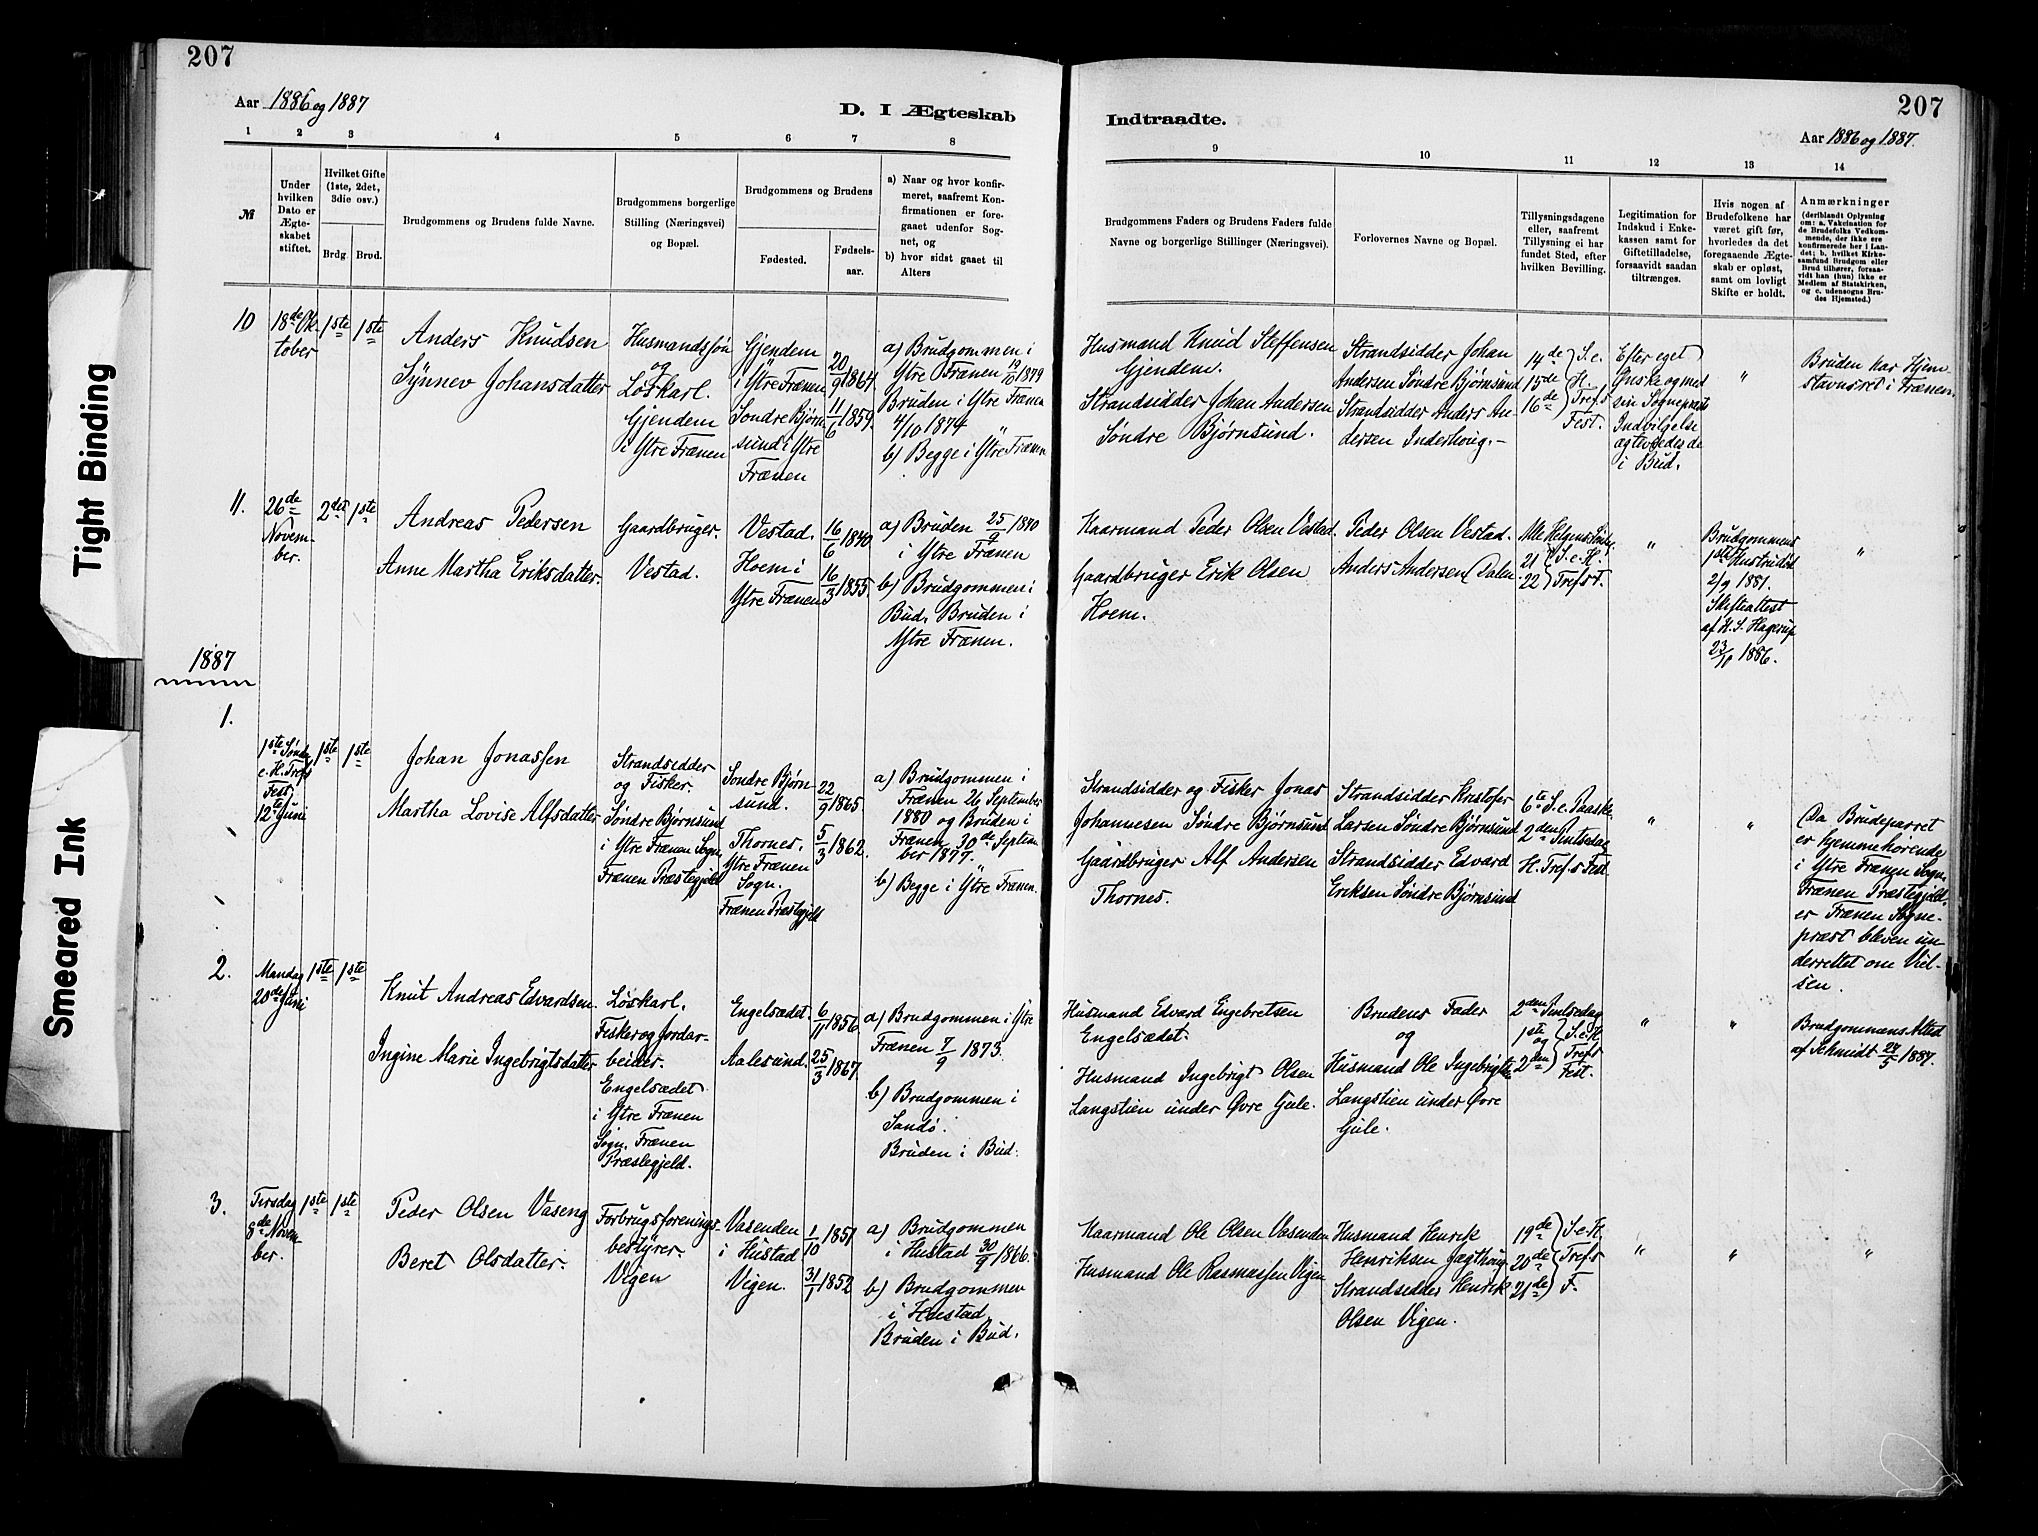 207
207
Aar 1886 og 1887
D. I Ægteskab
Indtraadte.
Aar 1886 og 1887.
1 2 3 4 5 6 7 8
9 10 11 12 13 14
№
Under hvilken Dato er Ægteskabet stiftet.
Hvilket Gifte (1ste, 2det, 3die osv.)
Brdg. Brud.
Brudgommens og Brudens fulde Navne.
Brudgommens borgerlige Stilling (Næringsvei) og Bopæl.
Brudgommens og Brudens
Fødested.
Fødselsaar.
a) Naar og hvor konfirmeret, saafremt Konfirmationen er foregaaet udenfor Sognet, og
b) hvor sidst gaaet til Alters
Brudgommens Faders og Brudens Faders fulde Navne og borgerlige Stillinger (Næringsvei).
Forlovernes Navne og Bopæl.
Tillysningsdagene eller, saafremt Tillysning ei har fundet Sted, efter hvilken Bevilling.
Legitimation for Indskud i Enkekassen samt for Giftetilladelse, forsaavidt saadan tiltrænges.
Hvis nogen af Brudefolkene har været gift før, hvorledes da det foregaaende Ægteskab er opløst, samt om lovligt Skifte er holdt.
Anmærkninger
(deriblandt Oplysning om: a. Vakcination for de Brudefolks Vedkommende, der ikke ere konfirmerede her i Landet; b. hvilket Kirkesamfund Brudgom eller Brud tilhører, forsaavidt han (hun) ikke er Medlem af Statskirken, og c. udensogns Brudes Hjemsted.)
10
18de Oktober
1ste
1ste
Anders Knudsen
Synnev Johansdatter
Husmandssøn
og
Løskarl.
Gjendem
i Ytre Frænen
Gjendem
i Ytre Frænen
Søndre Bjørnsund i Ytre
Frænen
20/9 1864
11/6 1859
a) Brudgommen i
Ytre Frænen 19/10 1879
Bruden i Ytre Frænen
4/10 1874
b) Begge i Ytre Frænen
Husmand Knud Steffensen
Gjendem.
Strandsidder Johan Andersen
Søndre Bjørnsund.
Strandsidder Johan
Andersen Søndre Bjørnsund
Strandsidder Anders Andersen Inderhaug.
14de
15de
16de
S. e.
H.
Tref.s
Fest.
Efter eget
Ønske og med
sin Sogneprests
Indvilgelse
ægteviedes de
i Bud.
"
Bruden har Hjemstavnsret i Frænen.
11.
26de
November.
2det
1ste
Andreas Pedersen
Anne Martha Eriksdatter.
Gaardbruger.
Vestad.
Vestad.
Hoem i
Ytre Frænen
16/6 1840
16/3 1855
a) Bruden 25/9 1870
i Ytre Frænen
b) Brudgommen i
Bud. Bruden i
Ytre Frænen.
Kaarmand Peder Olsen Vestad.
Gaardbruger Erik Olsen
Hoem.
Peder Olsen Vestad.
Anders Andersen Dalen.
Alle Helgens Sønd.
21
22
S. e. H.
Tref.s F.
"
Brudgommens
1ste Hustru død
2/9 1881.
Skifteattest
af H. S. Hagerup
23/10 1886.
"
1887
1.
1ste Sønd.
e. H. Tref.s
Fest.
12te Juni
1ste
1ste
Johan Jonassen
Martha Lovise Alfsdatter
Strandsidder
og Fisker.
Søndre Bjørnsund
i Ytre Frænen Sogn,
Frænen Præstegjeld
Søndre Bjørnsund.
Thornes,
Ytre Frænen
Sogn.
Frænen Præstegjeld
22/9 1865
5/3 1862.
a) Brudgommen i
Frænen 26 September
1880 og Bruden i
Frænen 30de September 1877.
b) Begge i Ytre Frænen.
Strandsidder og Fisker Jonas
Johannesen Søndre Bjørnsund
Gaardbruger Alf Andersen
Thornes.
Strandsidder Kristofer
Larsen Søndre Bjørnsund
Strandsidder Edvard
Eriksen Søndre Bjørnsund
6te S. e. Paaske
2den Pintsedag
H. Tref.s Fest
"
"
Da Brudeparret
er hjemmehørende
i Ytre Frænen Sogn,
Frænen Præstegjeld,
er Frænen Sognepræst bleven underrettet om Vielsen.
2.
Mandag
20de Juni
1ste
1ste
Knut Andreas Edvardsen.
Ingine Marie Ingebrigtsdatter
Løskarl.
Fisker og Jordarbeider.
Engelsædet
i Ytre Frænen
Sogn, Frænen
Præstegjeld.
Engelsædet.
Aalesund.
6/11 1856
25/3 1867.
a) Brudgommen i Ytre
Frænen 7/9 1873.
b) Brudgommen i
Sandø.
Bruden i Bud.
Husmand Edvard Engebretsen
Engelsædet.
Husmand Ingebrigt Olsen
Langstien under Øvre Gule.
Brudens Fader
og
Husmand Ole Ingebrigts.
Langstien under Øvre
Gule.
2den Pintsedag
1ste
og
2den
S. e. H.
Tref.s
Fest.
"
"
Brudgommens Attest
af Schmidt 27/5 1887.
3.
Tirsdag
8de November.
1ste
1ste
Peder Olsen Vaseng
Beret Olsdatter.
Forbrugsforeningsbestyrer.
Vigen
Vasenden
i Hustad
Vigen.
1/10 1851
31/1 1852
a) Brudgommen
i Hustad 30/9 1866.
b) Brudgommen
i Hustad
Bruden i Bud.
Kaarmand Ole Olsen Vasenden
Husmand Ole Rasmussen Vigen
Husmand Henrik
Henriksen Jagthaug
Strandsidder Henrik
Olsen Vigen.
19de
20de
21de
S. e. H.
Tref.s
F.
"
"
"
Tight Binding
Smeared Ink